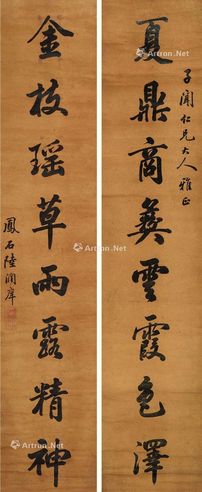 夏鼎商彝雲霞色澤
子聞仁兄大人雅正
金枝瑤草雨露精神
鳳石陸潤庠
Artron.Net
Artron.Net
Artron.Net
Artron.Net